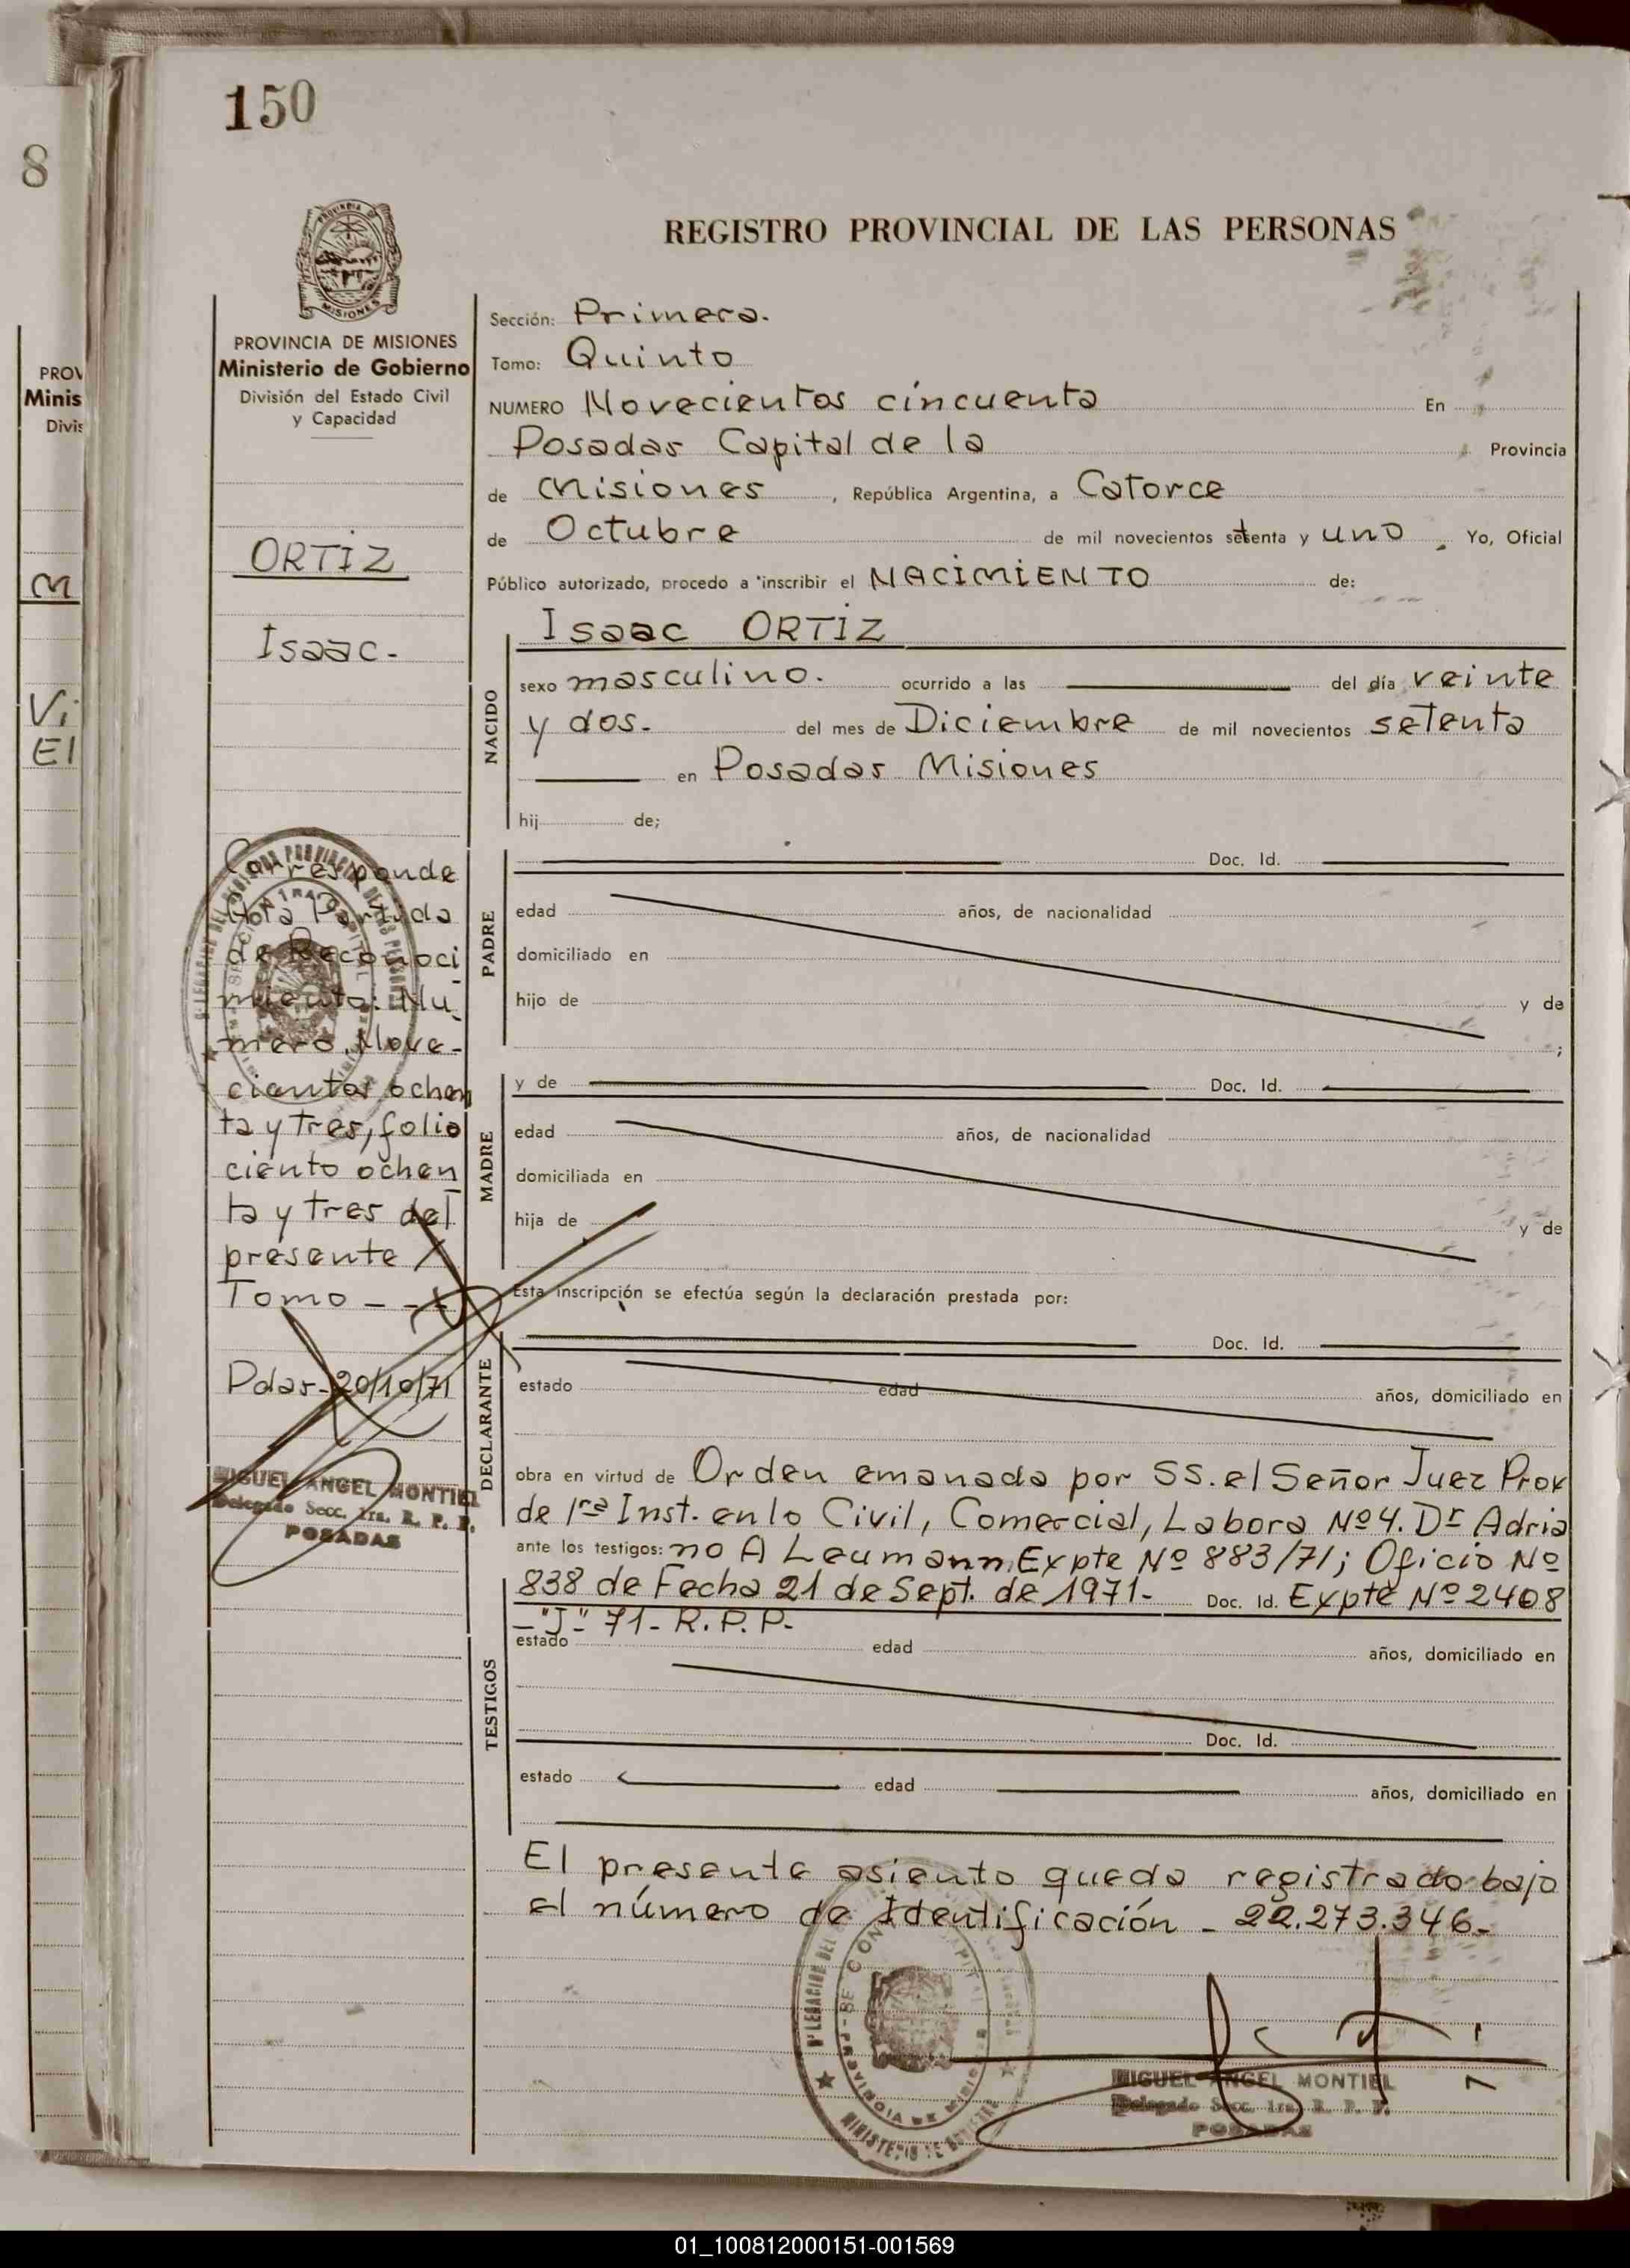 150
8
REGISTRO PROVINCIAL DE LAS PERSONAS
PROVINCIA DE MISIONES
Ministerio de Gobierno
División del Estado Civil
y Capacidad
ORTIZ
Isaac.-
Corresponde
Nota Partida
de Reconoci
miento: Nu
mero Nove-
cientos ochen
ta y tres, folio
ciento ochen
ta y tres del
presente
Tomo - - -
Pdas-20/10/71
MIGUEL ANGEL MONTIEL
Delegado Secc. 1ra. R. P. P.
POSADAS
Sección: Primera.
Tomo: Quinto
NUMERO Novecientos cincuenta En
Posadas Capital de la Provincia
de Misiones, República Argentina, a Catorce
de Octubre de mil novecientos setenta y uno. Yo, Oficial
Público autorizado, procedo a inscribir el NACIMIENTO de:
NACIDO
Isaac ORTIZ
sexo masculino. ocurrido a las del día veinte
y dos. del mes de Diciembre de mil novecientos setenta
en Posadas Misiones
hij de;
PADRE
Doc. Id.
edad años, de nacionalidad
domiciliado en
hijo de y de
;
MADRE
y de Doc. Id.
edad años, de nacionalidad
domiciliada en
hija de y de
Esta inscripción se efectúa según la declaración prestada por:
DECLARANTE
Doc. Id.
estado edad años, domiciliado en
obra en virtud de Orden emanada por SS. el Señor Juez Prov
de 1ra Inst. en lo Civil, Comercial, Labora Nº 4. Dr Adria
ante los testigos: no A Leumann, Expte Nº 883/71; Oficio Nº
838 de Fecha 21 de Sept. de 1971- Doc. Id. Expte Nº 2408
-"J"- 71- R.P.P.-
TESTIGOS
estado edad años, domiciliado en
Doc. Id.
estado edad años, domiciliado en
El presente asiento queda registrado bajo
el número de Identificación - 22.273.346-
MIGUEL ANGEL MONTIEL
Delegado Secc. 1ra. R. P. P.
POSADAS
01_100812000151-001569